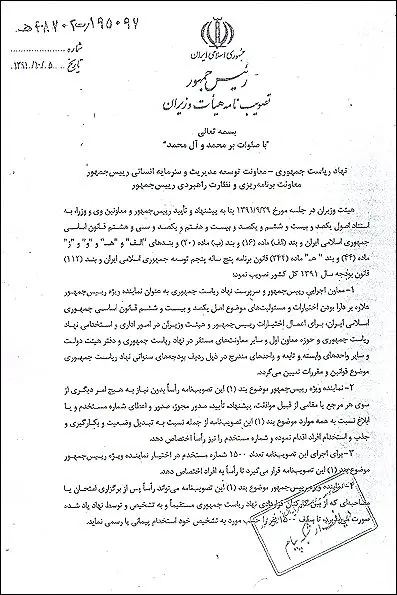 ۱۹۵۰۹۷/ت۴۸۷۰۲هـ
شماره
تاریخ ۱۳۹۱/۱۰/۰۵
جمهوری اسلامی ایران
رئیس جمهور
تصویب نامه هیأت وزیران
بسمه تعالی
"با صلوات بر محمد و آل محمد"
نهاد ریاست جمهوری – معاونت توسعه مدیریت و سرمایه انسانی رییس‌جمهور
معاونت برنامه‌ریزی و نظارت راهبردی رییس‌جمهور
هیئت وزیران در جلسه مورخ ۱۳۹۱/۹/۲۹ بنا به پیشنهاد و تأیید رییس‌جمهور و معاونین وی و وزراء به
استناد اصول یکصد و بیست و ششم و یکصد و بیست و هفتم و یکصد و سی و هشتم قانون اساسی
جمهوری اسلامی ایران و بند (الف) ماده (۱۶) و بند (ب) ماده (۲۰) و بندهای "الف" و "هـ" و "و" و "ز"
ماده (۴۴) و بند "هـ" ماده (۲۲۴) قانون برنامه پنج ساله پنجم توسعه جمهوری اسلامی ایران و بند (۱۱۲)
قانون بودجه سال ۱۳۹۱ کل کشور تصویب نمود:
۱– معاون اجرایی رییس‌جمهور و سرپرست نهاد ریاست جمهوری به عنوان نماینده ویژه رییس‌جمهور
علاوه بر دارا بودن اختیارات و مسئولیت‌های موضوع اصل یکصد و بیست و ششم قانون اساسی جمهوری
اسلامی ایران، برای اعمال اختیارات رییس‌جمهور و هیئت وزیران در امور اداری و استخدامی نهاد
ریاست جمهوری و حوزه معاون اول و سایر معاونت‌های مستقر در نهاد ریاست جمهوری و دفتر هیئت دولت
و سایر واحدهای وابسته و تابعه و واحدهای مندرج در ذیل ردیف بودجه‌های سنواتی نهاد ریاست جمهوری
موضوع قوانین و مقررات تعیین می‌گردد.
۲– نماینده ویژه رییس‌جمهور موضوع بند (۱) این تصویب‌نامه رأساً بدون نیاز به هیچ امر دیگری از
سوی هر مرجع یا مقامی از قبیل موافقت، پیشنهاد، تأیید، صدور مجوز، صدور و اعطای شماره مستخدم و یا
ابلاغ نسبت به همه موارد موضوع بند (۱) این تصویب‌نامه از جمله نسبت به تبدیل وضعیت و بکارگیری و
جذب و استخدام افراد اقدام نموده و شماره مستخدم را نیز رأساً اختصاص دهد.
۳– برای اجرای این تصویب‌نامه تعداد ۱۵۰۰ شماره مستخدم در اختیار نماینده ویژه رییس‌جمهور
موضوع بند (۱) این تصویب‌نامه قرار می‌گیرد تا رأساً به افراد اختصاص دهد.
۴– نماینده ویژه رییس‌جمهور موضوع بند (۱) این تصویب‌نامه می‌تواند رأساً پس از برگزاری امتحان یا
مصاحبه‌ای که از بین کارکنان قراردادی نهاد ریاست جمهوری مستقیماً و به تشخیص و توسط نهاد یاد شده
صورت می‌پذیرد، تا سقف ۱۵۰۰ نفر را حسب مورد به تشخیص خود استخدام پیمانی یا رسمی نماید.
۱